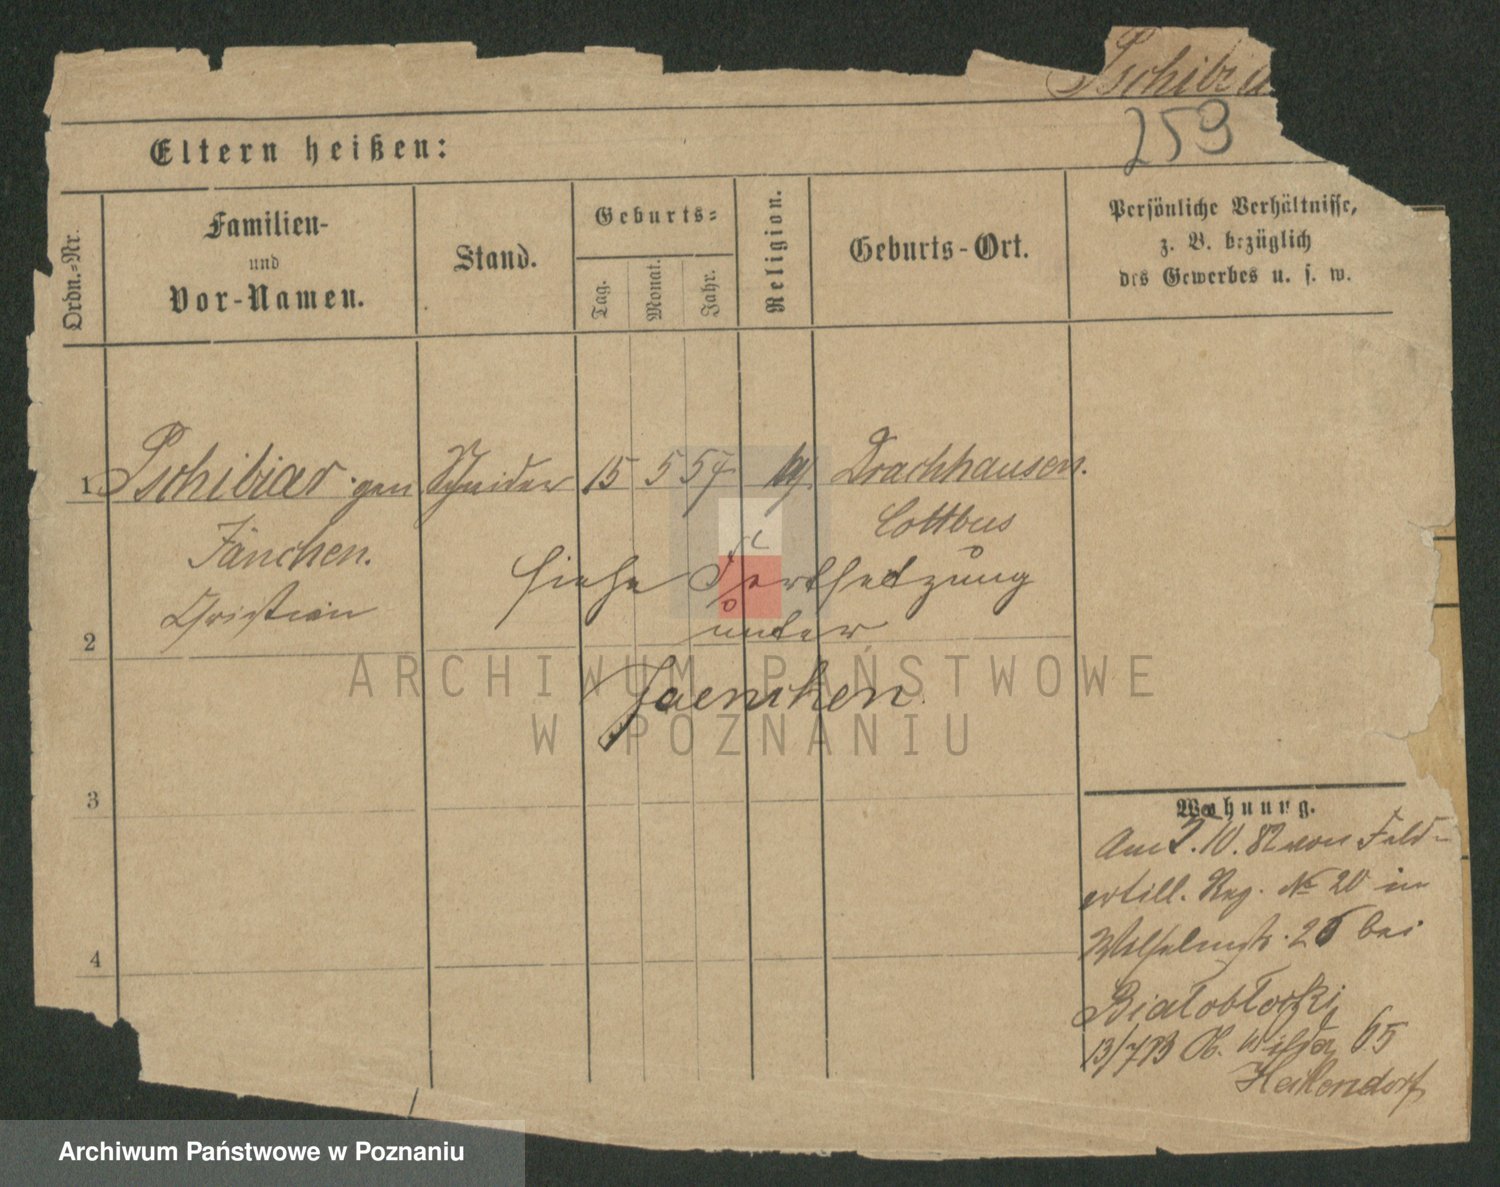 Pschibia
259
Eltern heißen:
Ordn.=Nr.
Familien-
und
Vor-Namen.
Stand.
Geburts=
Tag.
Monat.
Jahr.
Religion.
Geburts-Ort.
Persönliche Verhältnisse,
z. B. bezüglich
des Gewerbes u. s. w.
1 Pschibiar gen Schneider 15 5 57 Drachhausen.
Jänchen. Cottbus
Christian siehe Fortsetzung
2 unter
Jaenchen.
3
4
Wohnung.
Am 2. 10. 82 von Feld-
artill. Reg. № 20 in
Wilhelmstr. 25 bei
Białobłocki
13/7 83 Ob. Wilda 65
Heikendorf
ARCHIWUM PAŃSTWOWE
W POZNANIU
Archiwum Państwowe w Poznaniu